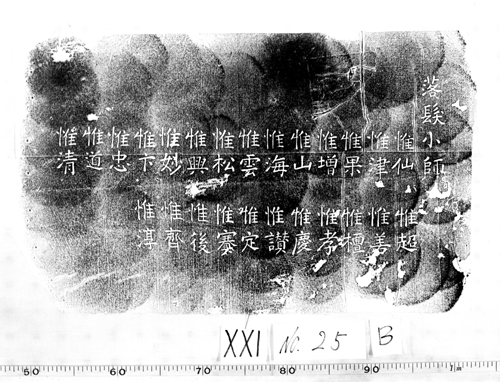 落髮小師
惟仙 惟超
惟津 惟善
惟果 惟檀
惟增 惟孝
惟山 惟慶
惟海 惟讃
惟雲 惟定
惟松 惟
惟興 惟後
惟妙 惟齊
惟卞 惟淳
惟忠
惟道
惟清
XXI No. 25 B
50 60 70 80 90 1m